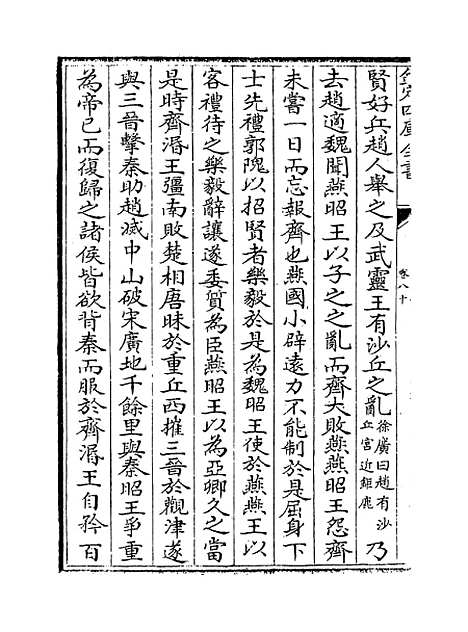 欽定四庫全書
卷八十
賢好兵趙人舉之及武靈王有沙丘之亂徐廣曰趙有沙丘宮近鉅鹿乃
去趙適魏聞燕昭王以子之之亂而齊大敗燕燕昭王怨齊
未嘗一日而忘報齊也燕國小辟遠力不能制於是屈身下
士先禮郭隗以招賢者樂毅於是為魏昭王使於燕燕王以
客禮待之樂毅辭讓遂委質為臣燕昭王以為亞卿久之當
是時齊湣王彊南敗楚相唐昧於重丘西摧三晉於觀津遂
與三晉擊秦助趙滅中山破宋廣地千餘里與秦昭王爭重
為帝已而復歸之諸侯皆欲背秦而服於齊湣王自矜百